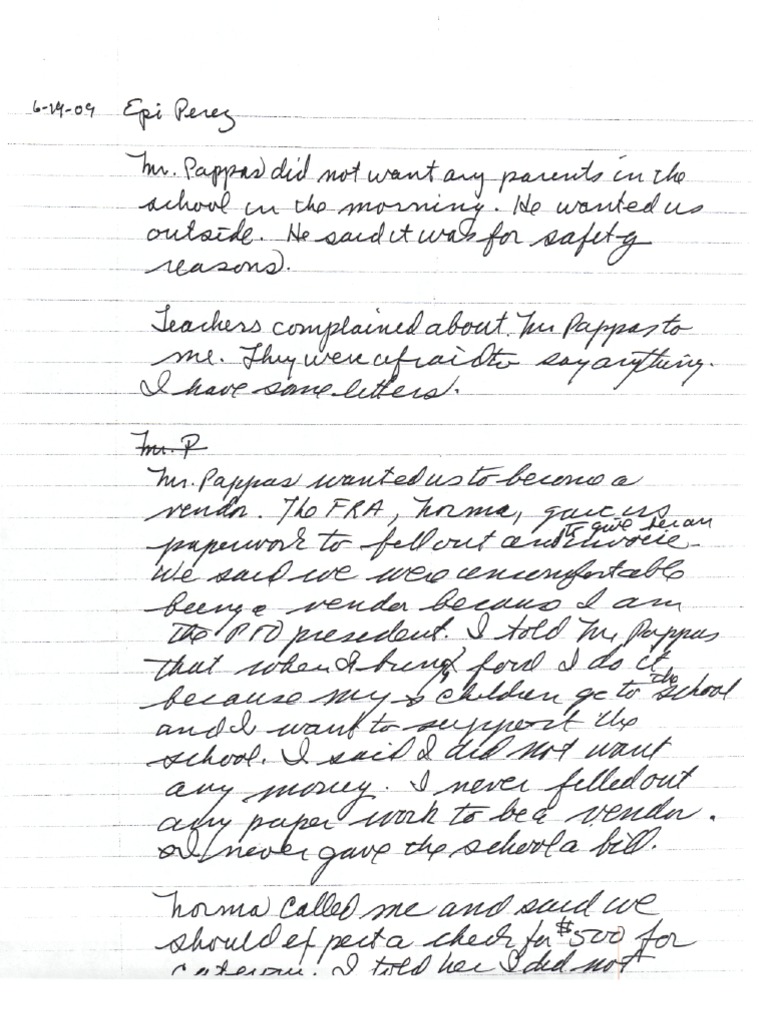 6-29-09 Epi Perez
Mr. Pappas did not want any parents in the
school in the morning. He wanted us
outside. He said it was for safety
reasons.
Teachers complained about Mr Pappas to
me. They were afraid to say anything.
I have some letters.
Mr. P
Mr. Pappas wanted us to become a
vendor. The FRA, Norma, gave us
to give her an
paperwork to fill out and invoice.
We said we were uncomfortable
being a vendor because I am
the PTO president. I told Mr. Pappas
that when I bring food I do it
because my children go to the school
and I want to support the
school. I said I did not want
any money. I never filled out
any paper work to be a vendor.
I never gave the school a bill.
Norma called me and said we
should expect a check for $500 for
catering. I told her I did not